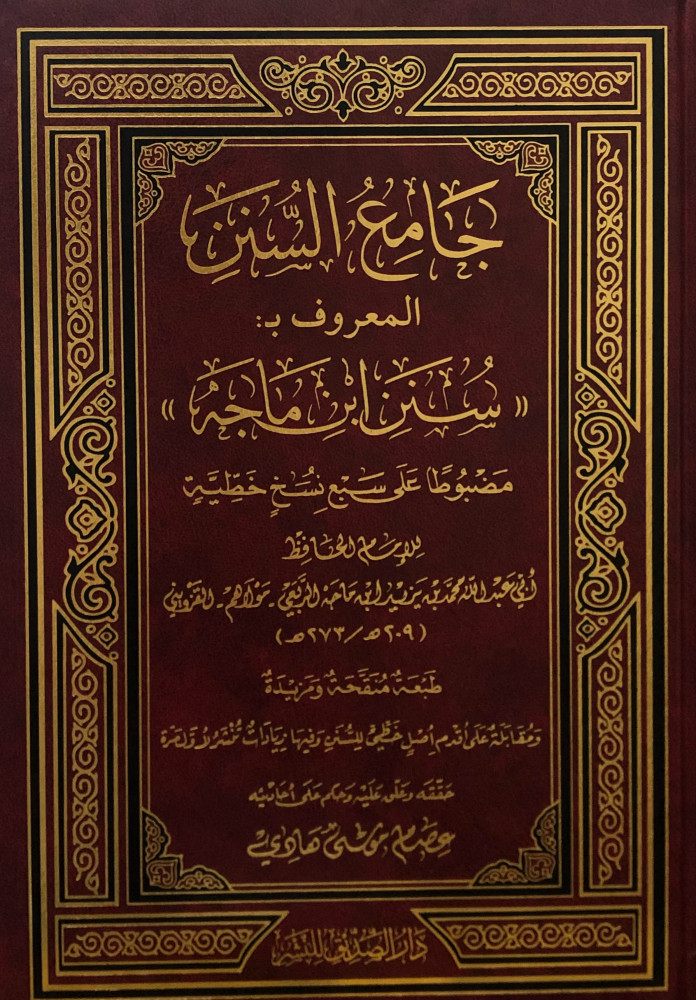 جَامِعُ السُّنَنِ
المعروف بـ:
«سُنَنِ ابْنِ مَاجَه»
مَضْبُوطًا عَلَى سَبْعِ نُسَخٍ خَطِّيَّةٍ
للإمام الحافظ
أبي عَبد الله محمّد بن يزيد ابن مَاجَه الرَّبَعي - مَوْلاهم - القزويني
(٢٠٩هـ/٢٧٣هـ)
طَبْعَةٌ مُنَقَّحَةٌ وَمَزِيدَةٌ
وَمُقَابَلَةٌ عَلَى أقدم أصْلٍ خَطِّيٍّ لِلسُّنَنِ وَفِيهَا زِيَادَاتٌ تُنْشَرُ لأوّل مَرة
حَقّقَه وَعَلّق عَلَيْه وَحكم عَلى أحَاديْثه
عصَام مُوسَى هَادِي
دَارُ الصِّدِّيقِ لِلنَّشْرِ